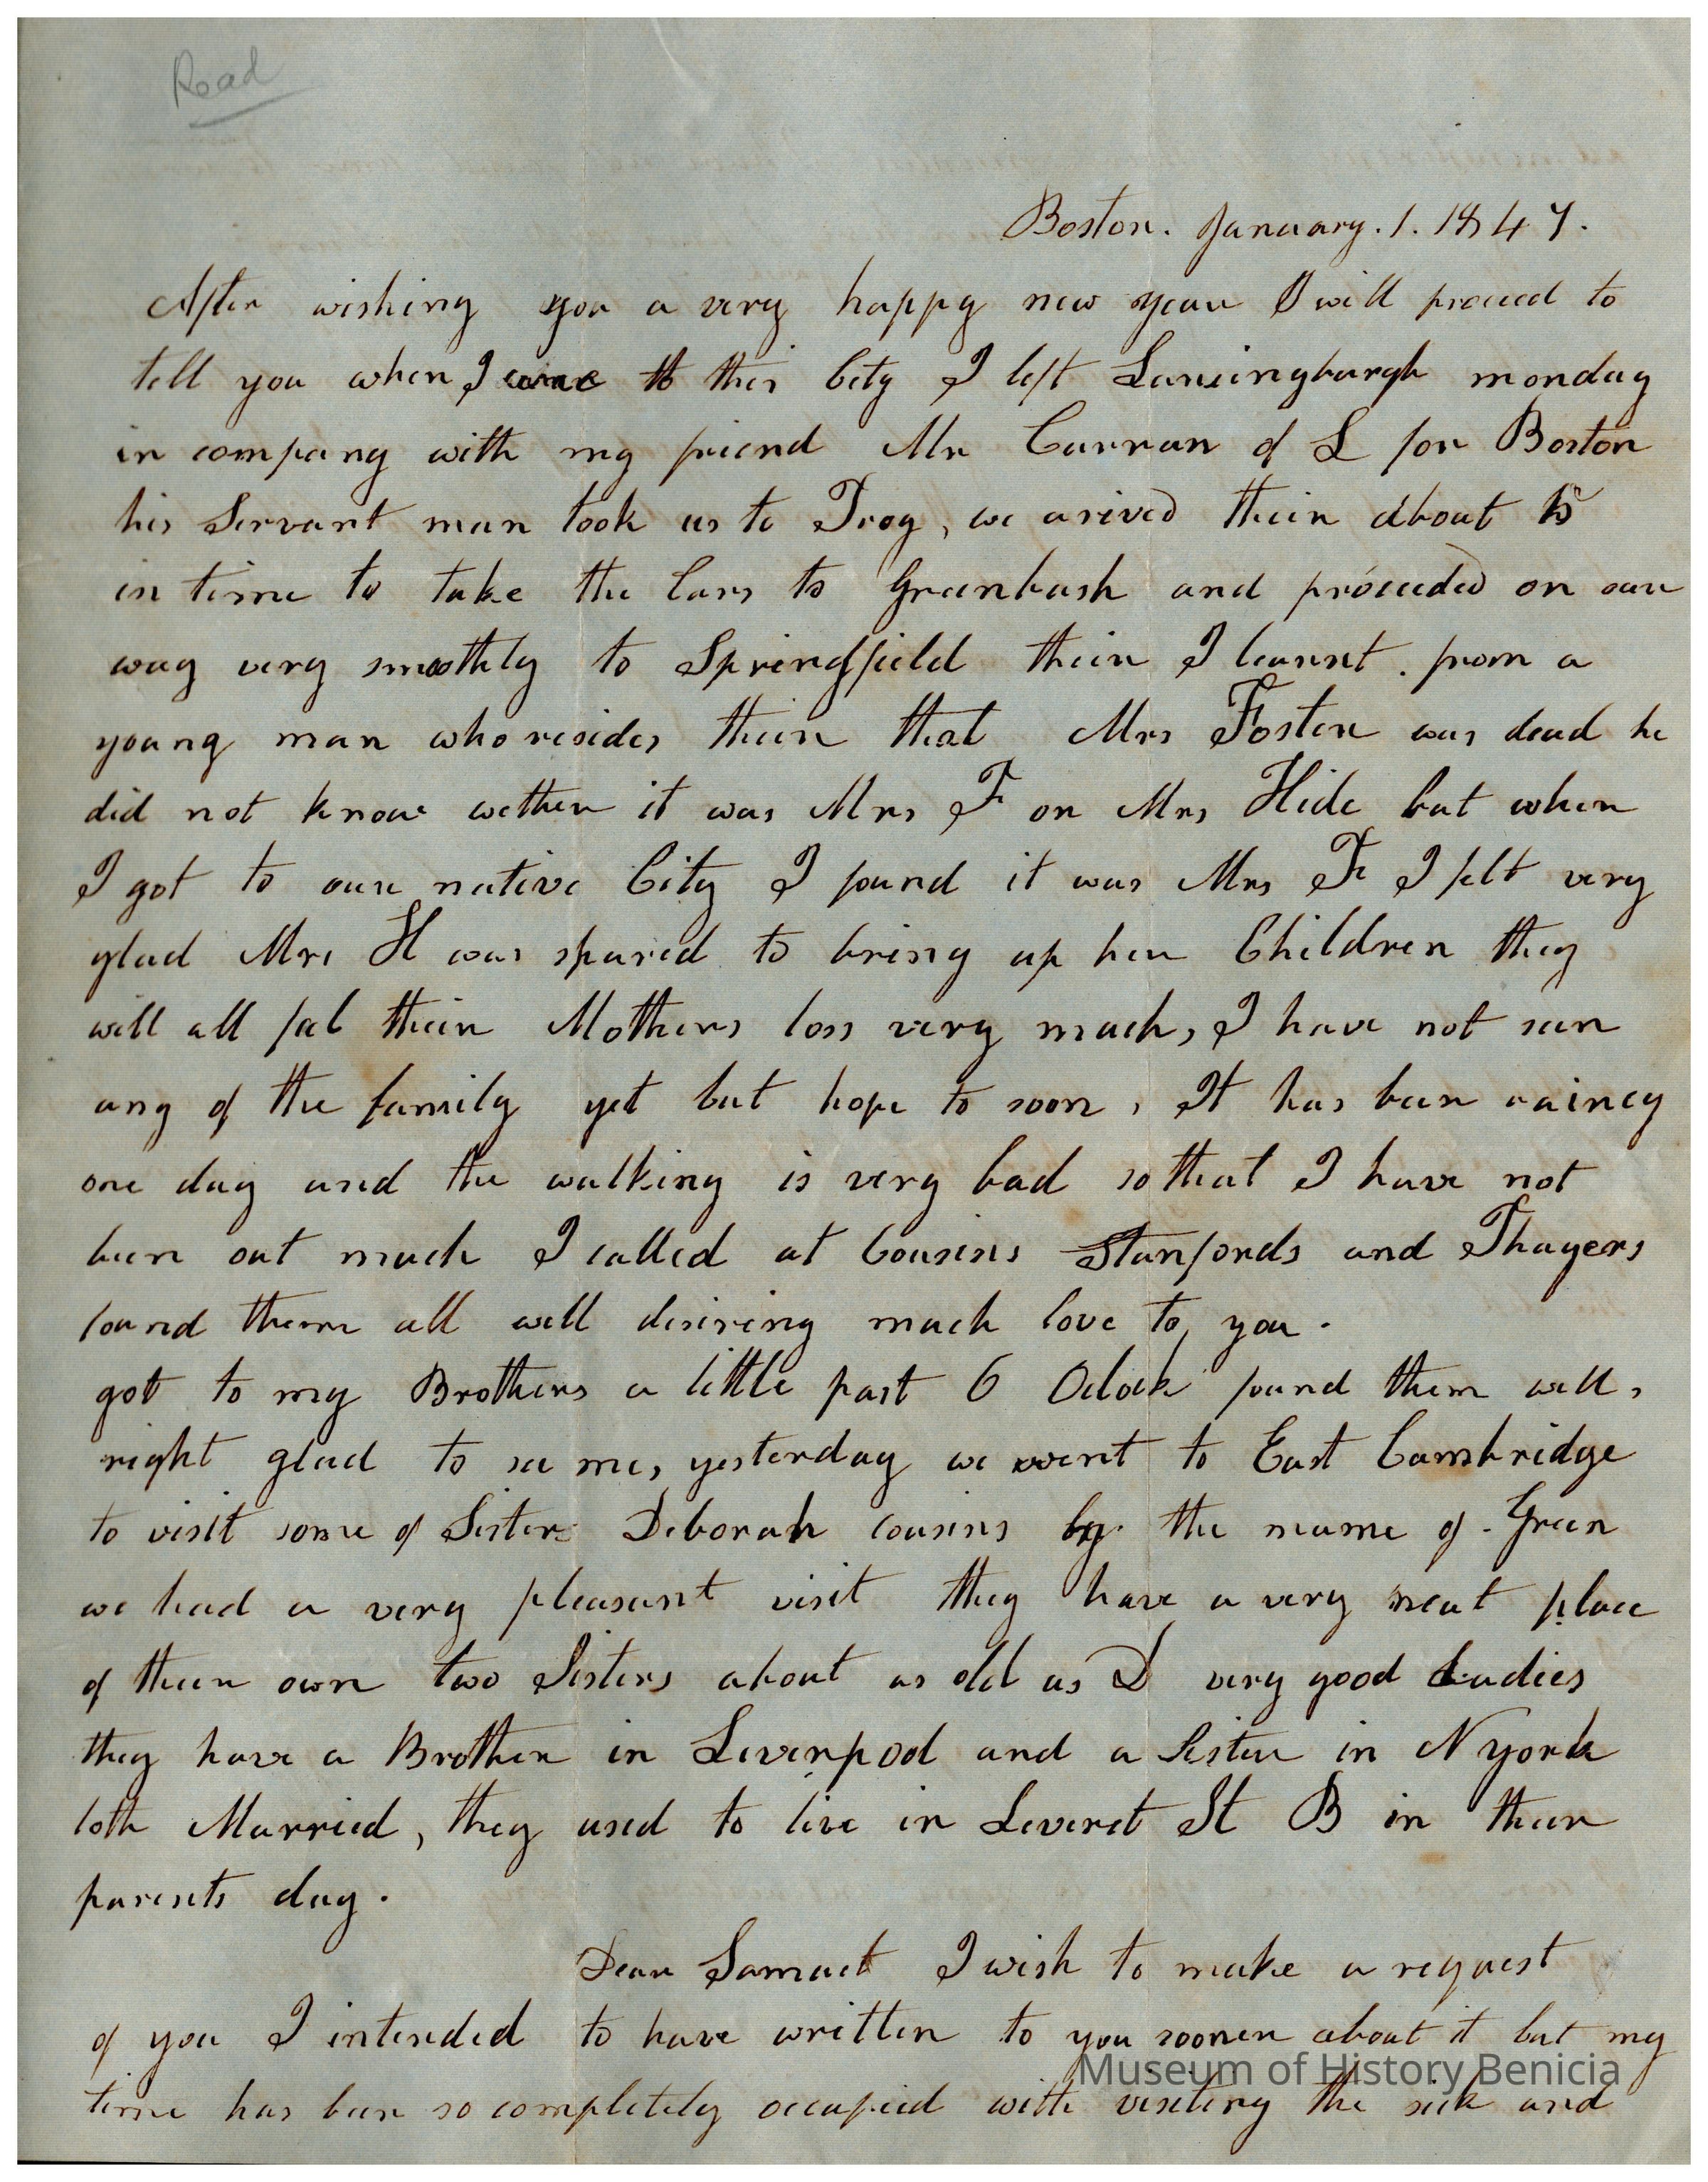 Read
Boston. January. 1. 1847.
After wishing you a very happy new year I will proceed to
tell you when I came to this City I left Lansingburgh monday
in company with my friend Mr Curran of L for Boston
his Servant man took us to Troy, we arived their about 15
in time to take the Cars to Greenbush and proceeded on our
way very smoothly to Springfield their I learnt from a
young man who resides their that Mrs Foster was dead he
did not know wether it was Mrs F or Mrs Hide but when
I got to our native City I found it was Mrs F I felt very
glad Mrs H was spared to bring up her Children they
will all feel their Mothers loss very much, I have not seen
any of the family yet but hope to soon, It has been rainey
one day and the walking is very bad so that I have not
been out much I called at Cousins Stanfords and Thayers
found them all well desiring much love to you.
got to my Brothers a little past 6 Oclock found them well,
right glad to see me, yesterday we went to East Cambridge
to visit some of Sister Deborah cousins by the name of Green
we had a very pleasant visit they have a very neat place
of their own two Sisters about as old as D very good Ladies
they have a Brother in Liverpool and a Sister in N york
both Married, they used to live in Leveret St B in their
parents day.
Dear Samuel I wish to make a request
of you I intended to have written to you sooner about it but my
time has been so completely occupied with visiting the sick and
Museum of History Benicia